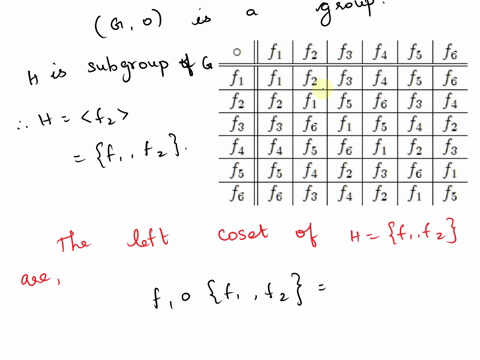 (G, o) is a group.
H is subgroup of G
∴ H = <f2>
= {f1, f2}.
o f1 f2 f3 f4 f5 f6
f1 f1 f2 f3 f4 f5 f6
f2 f2 f1 f5 f6 f3 f4
f3 f3 f6 f1 f5 f4 f2
f4 f4 f5 f6 f1 f2 f3
f5 f5 f4 f2 f3 f6 f1
f6 f6 f3 f4 f2 f1 f5
The left coset of H = {f1, f2}
are,
f1 o {f1, f2} =